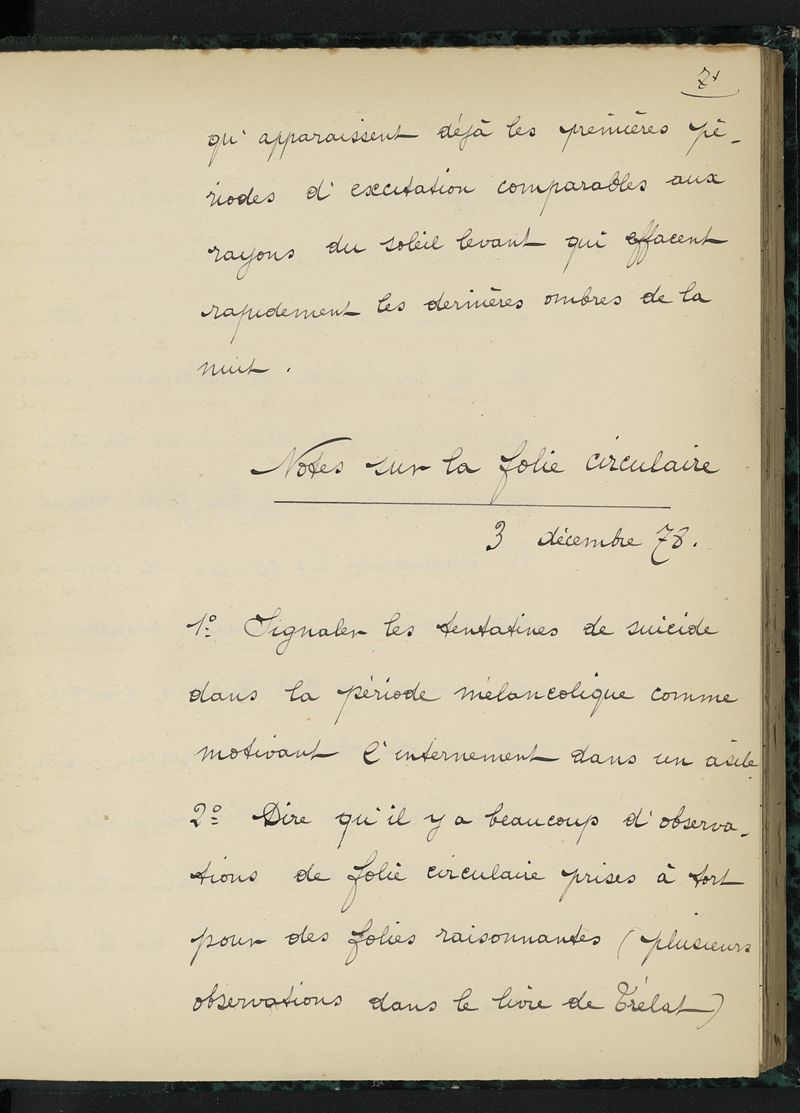 71
qu'apparaissent déjà les premières pé-
riodes d'excitation comparables aux
rayons du soleil levant qui effacent
rapidement les dernières ombres de la
nuit.
Notes sur la folie circulaire
3 décembre 78.
1º Signaler les tentatives de suicide
dans la période mélancolique comme
motivant l'internement dans un asile
2º Dire qu'il y a beaucoup d'observa-
tions de folie circulaire prises à tort
pour des folies raisonnantes (plusieurs
observations dans le livre de Trélat)